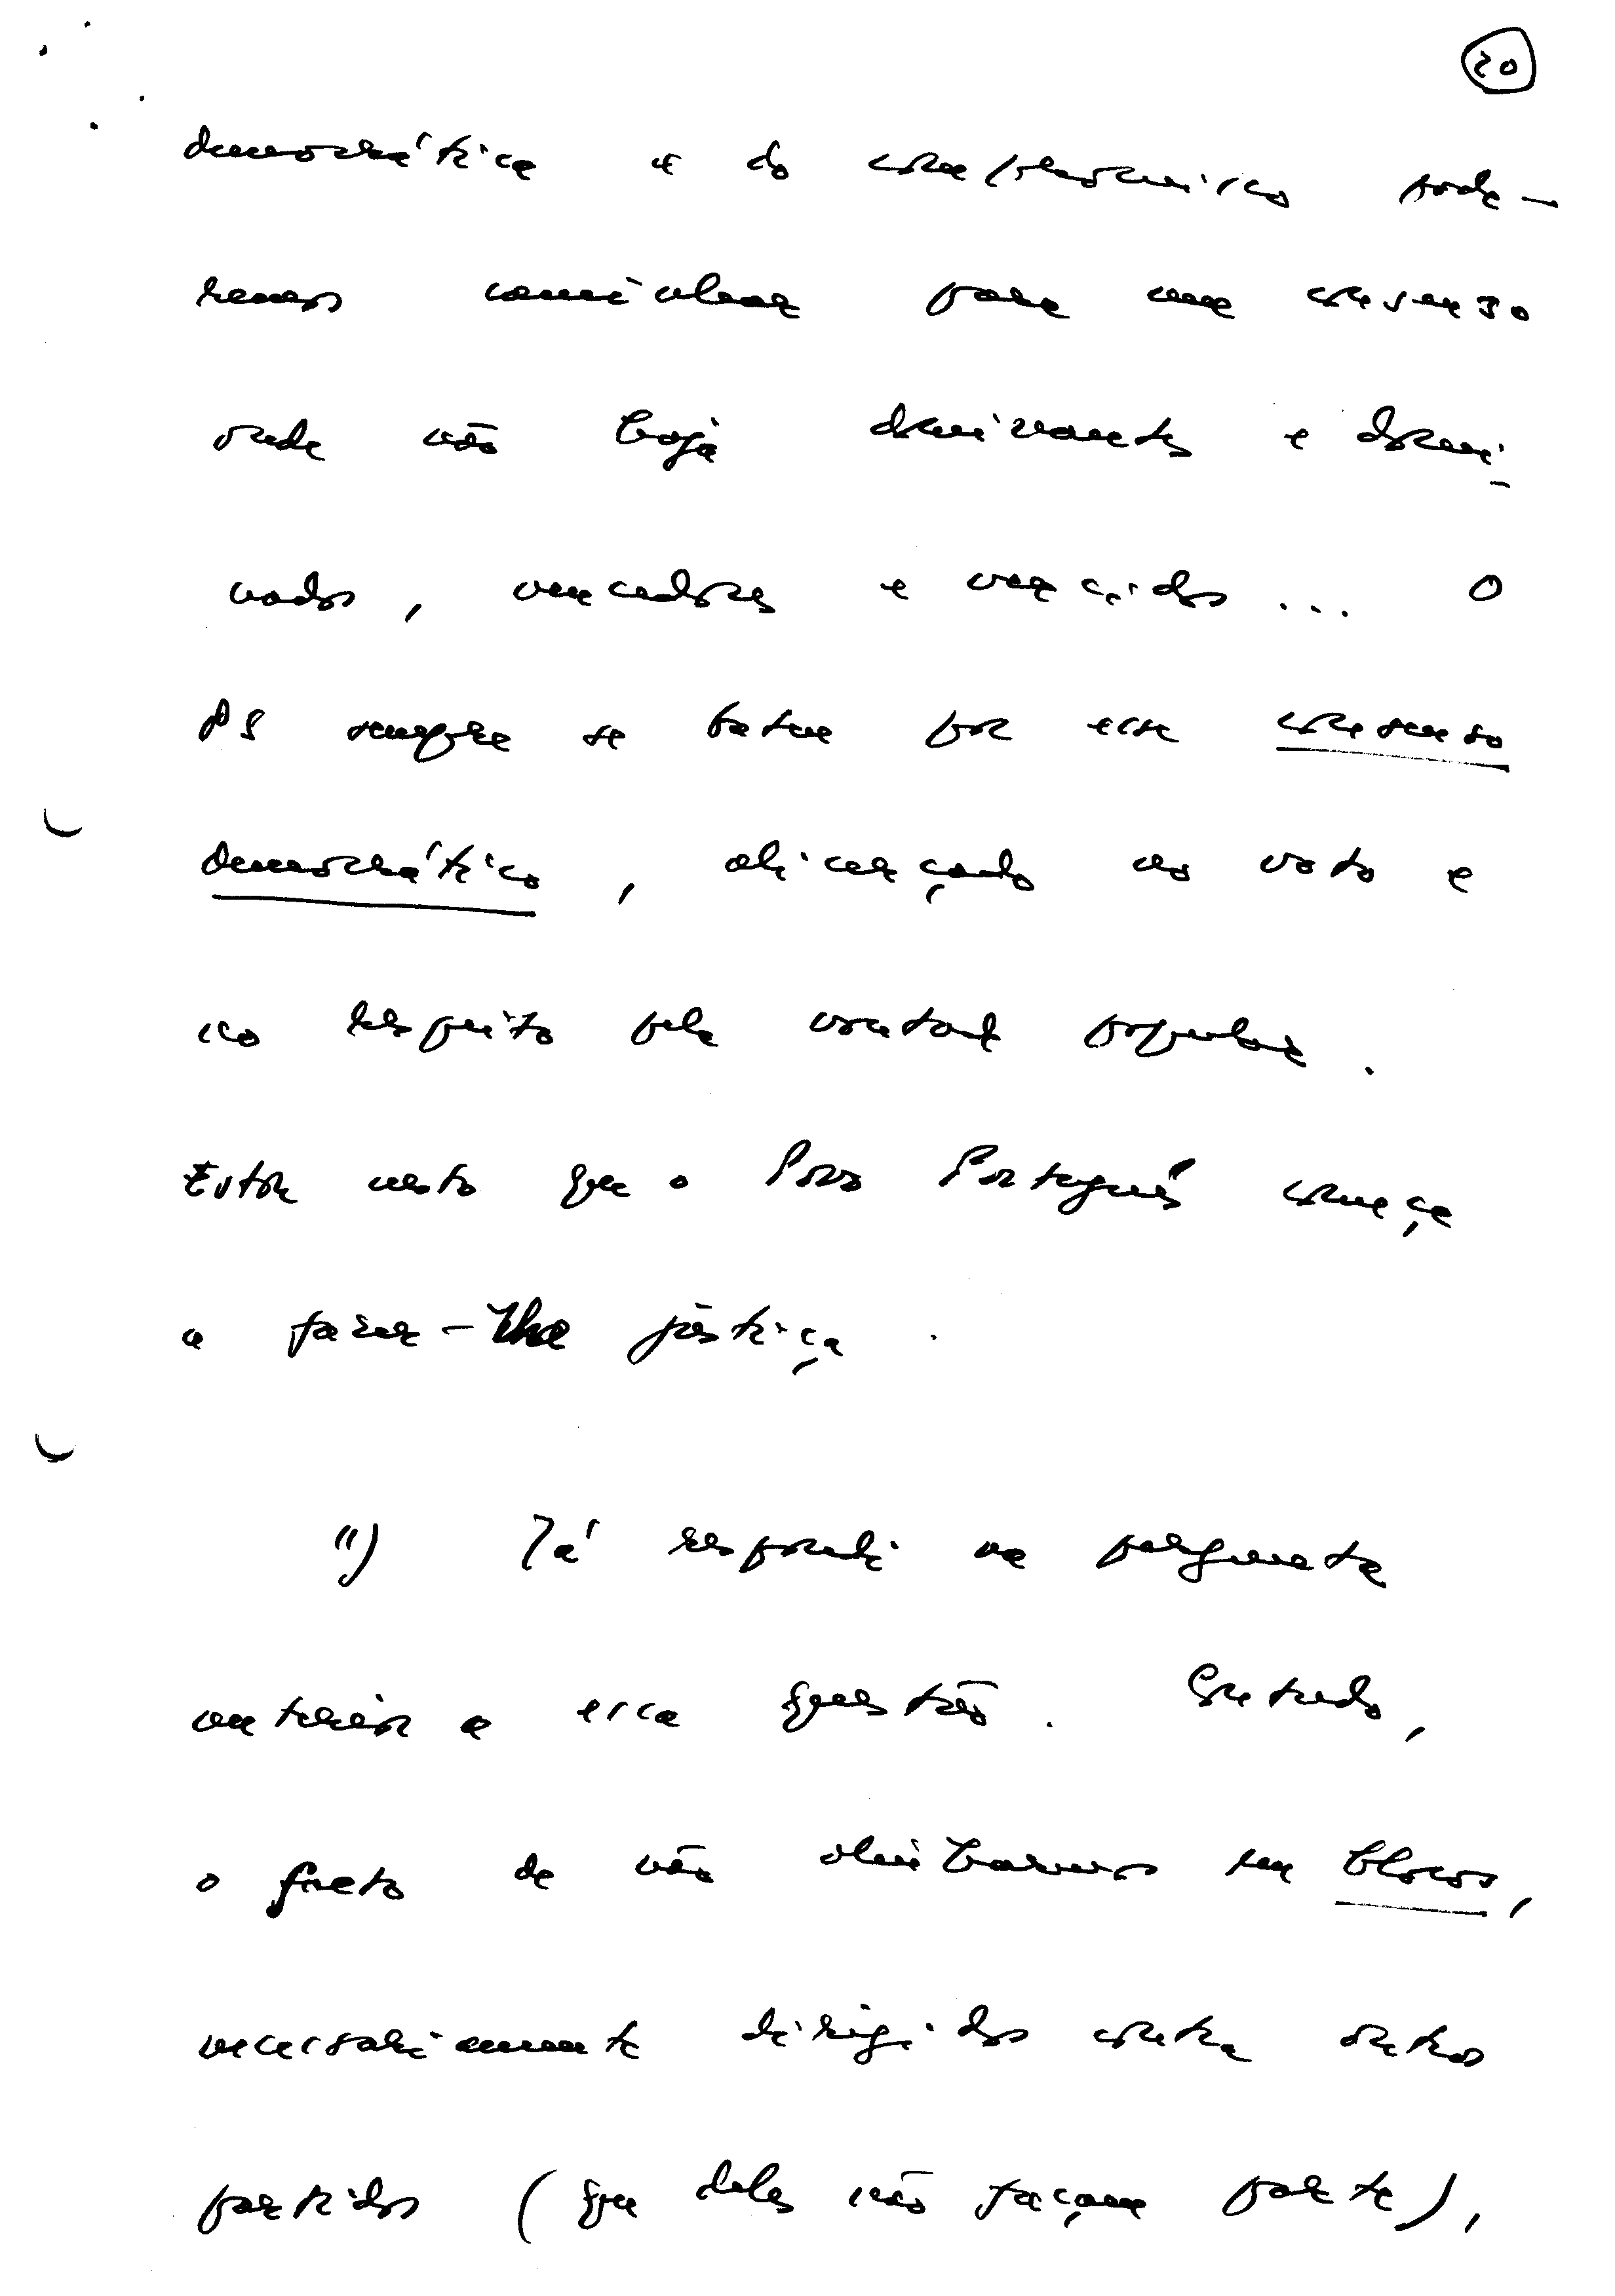 20
democrática e do compromisso pode-
remos caminhar para um consenso
onde não haja dominantes e domi-
nados, vencedores e vencidos... O
PS sempre se bateu por esse consenso
democrático, alicerçado no voto e
no respeito pela vontade popular.
Estou certo que o Povo Português começa
a fazer-lhe justiça.
11) Já respondi na pergunta
anterior a essa questão. Contudo,
o facto de não alinharmos em blocos,
necessariamente dirigidos contra outros
partidos (que deles não façam parte),